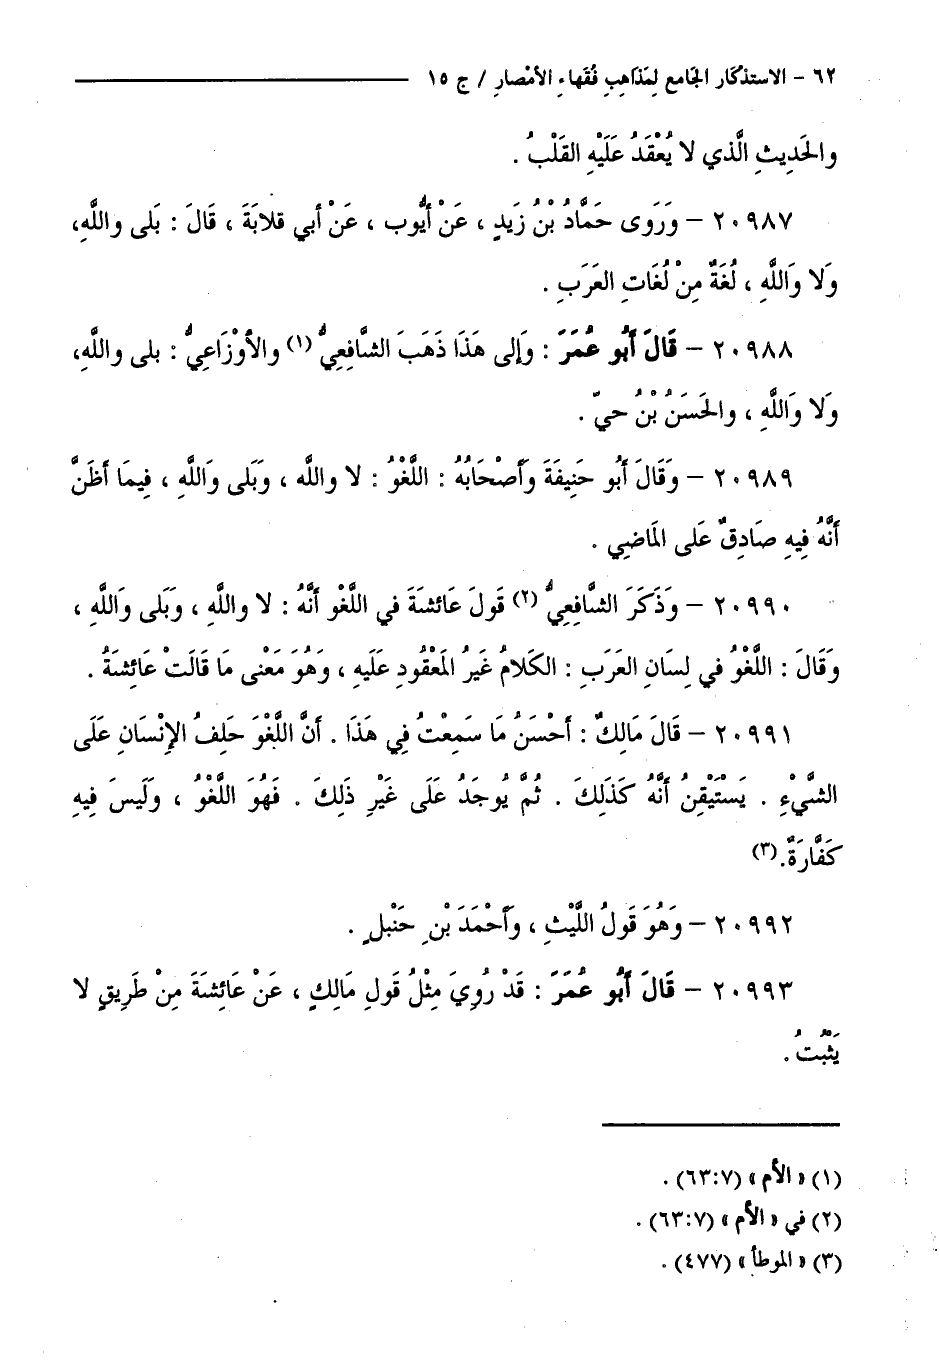 ٦٢ – الاستذكار الجامع لِمَذاهِبِ فُقَهاء الأمْصارِ / ج ١٥
والحَدِيثِ الَّذي لا يُعْقَدُ عَلَيْهِ القَلْبُ .
٢٠٩٨٧ – وَرَوى حَمَّادُ بْنُ زَيدٍ ، عَنْ أيُّوب ، عَنْ أبي قلابَةَ ، قَالَ : بَلى واللَّهِ،
وَلا وَاللَّهِ ، لُغَةٌ مِنْ لُغَاتِ العَرَبِ .
٢٠٩٨٨ – قَالَ أَبُو عُمَرَ : وَإلى هَذَا ذَهَبَ الشَّافِعِيُّ (١) والأَوْزَاعِيُّ : بلى واللَّهِ،
وَلا وَاللَّهِ ، والحَسَنُ بْنُ حيّ .
٢٠٩٨٩ – وَقَالَ أَبُو حَنِيفَةَ وَأَصْحَابُهُ : اللَّغْوُ : لا والله ، وَبَلى وَاللَّهِ ، فِيمَا أظَنَّ
أَنَّهُ فِيهِ صَادِقٌ عَلى المَاضِي .
٢٠٩٩٠ – وَذَكَرَ الشَّافِعِيُّ (٢) قَولَ عَائشَةَ في اللَّغْوِ أَنَّهُ : لا واللَّهِ ، وَبَلى وَاللَّهِ ،
وَقَالَ : اللَّغْوُ في لِسَانِ العَرَبِ : الكَلامُ غَيرُ المَعْقُودِ عَلَيهِ ، وَهُوَ مَعْنى مَا قَالَتْ عَائِشَةُ .
٢٠٩٩١ – قَالَ مَالِكٌ : أَحْسَنُ مَا سَمِعْتُ فِي هَذَا . أَنَّ اللَّغْوَ حَلِفُ الإِنْسَانِ عَلَى
الشَّيْءِ . يَسْتَيْقِنُ أَنَّهُ كَذَلِكَ . ثُمَّ يُوجَدُ عَلَى غَيْرِ ذَلِكَ . فَهُوَ اللَّغْوُ ، وَلَيسَ فِيهِ
كَفَّارَةٌ.(٣)
٢٠٩٩٢ – وَهُوَ قَولُ اللَّيْثِ ، وَأَحْمَدَ بْنِ حَنْبلٍ .
٢٠٩٩٣ – قَالَ أَبُو عُمَرَ : قَدْ رُوِيَ مِثْلُ قَولِ مَالِكٍ ، عَنْ عَائِشَةَ مِنْ طَرِيقٍ لا
يَثْبُتُ .
(١) « الأم » (٧:٦٣) .
(٢) في « الأم » (٧:٦٣) .
(٣) « الموطأ » (٤٧٧) .